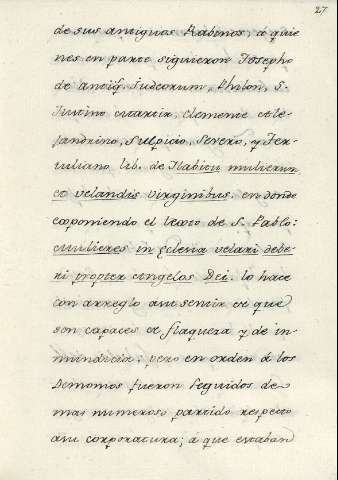 27
de sus antiguos Rabinos, á quie
nes en parte siguieron Josepho
de antiq. Judeorum, Philon, S.
Justino Martir, Clemente Ale-
jandrino, Sulpicio, Severo, y Ter-
tuliano lib. de Habitu mulierum
et velandis virginibus: en donde
exponiendo el texto de S. Pablo:
Mulieres in Eclesia velari debe-
ri propter Angelos Dei. lo hace
con arreglo asu sentir de que
son capaces de flaqueza y de in-
mundicia: pero en orden á los
Demonios fueron seguidos de
mas numeroso partido respecto
asu corporatura; á que estaban